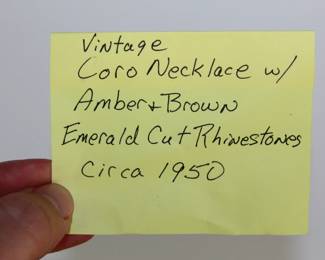 Vintage
Coro Necklace w/
Amber + Brown
Emerald Cut Rhinestones
Circa 1950